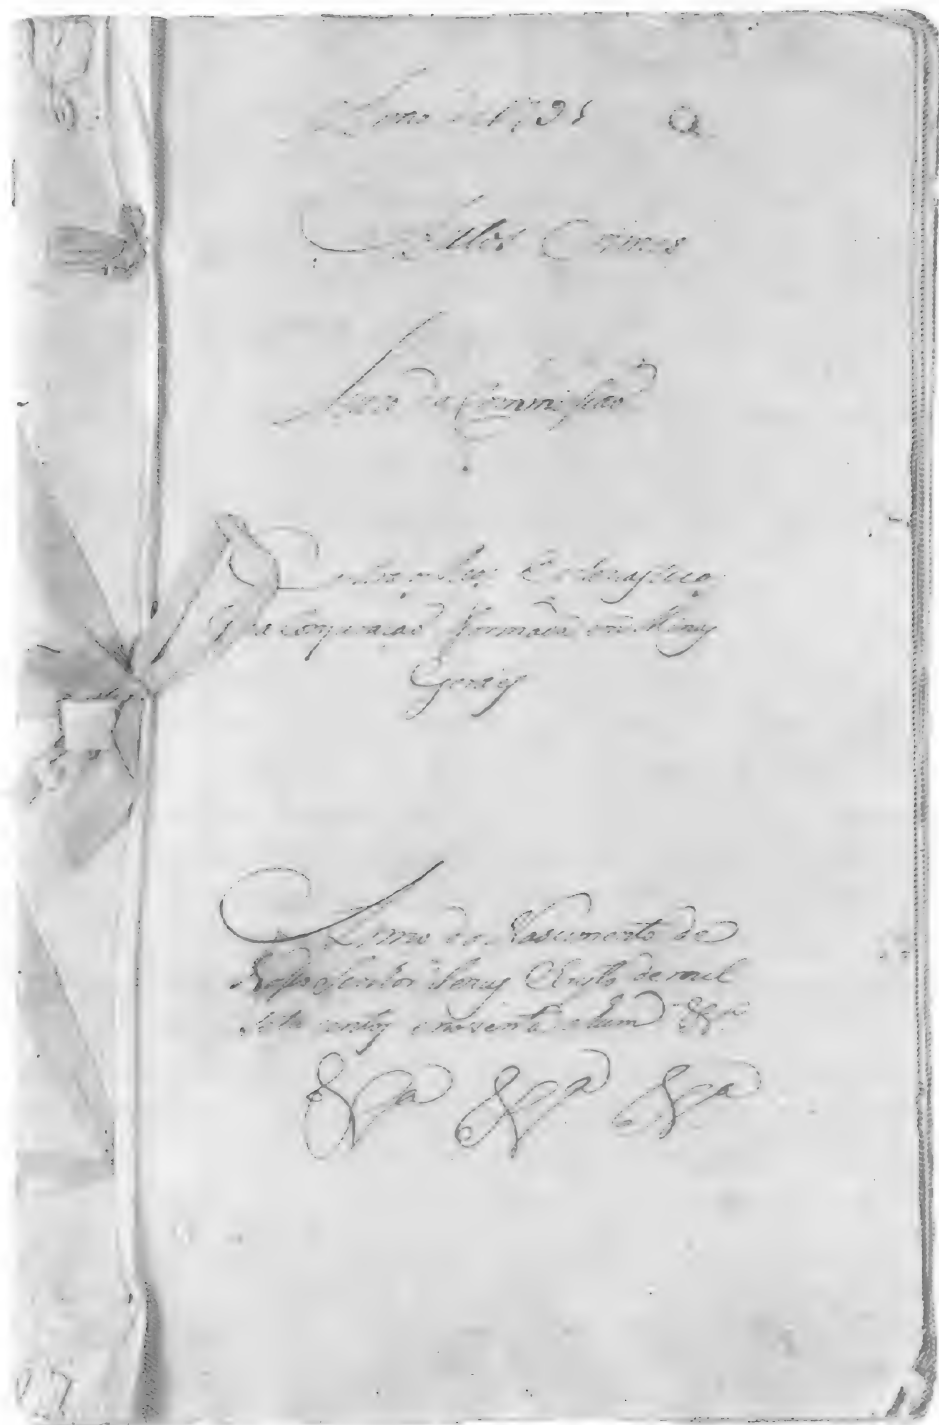 Anno de 1791
Autos Crimes
Juizo da Commissão
Contra os Reos Eclesiasticos
da conjuração formada em Minas
Geraes
Anno do Nascimento de
Nosso Senhor Jesus Christo de mil
sete centos e noventa e hum &ª
&ª &ª &ª